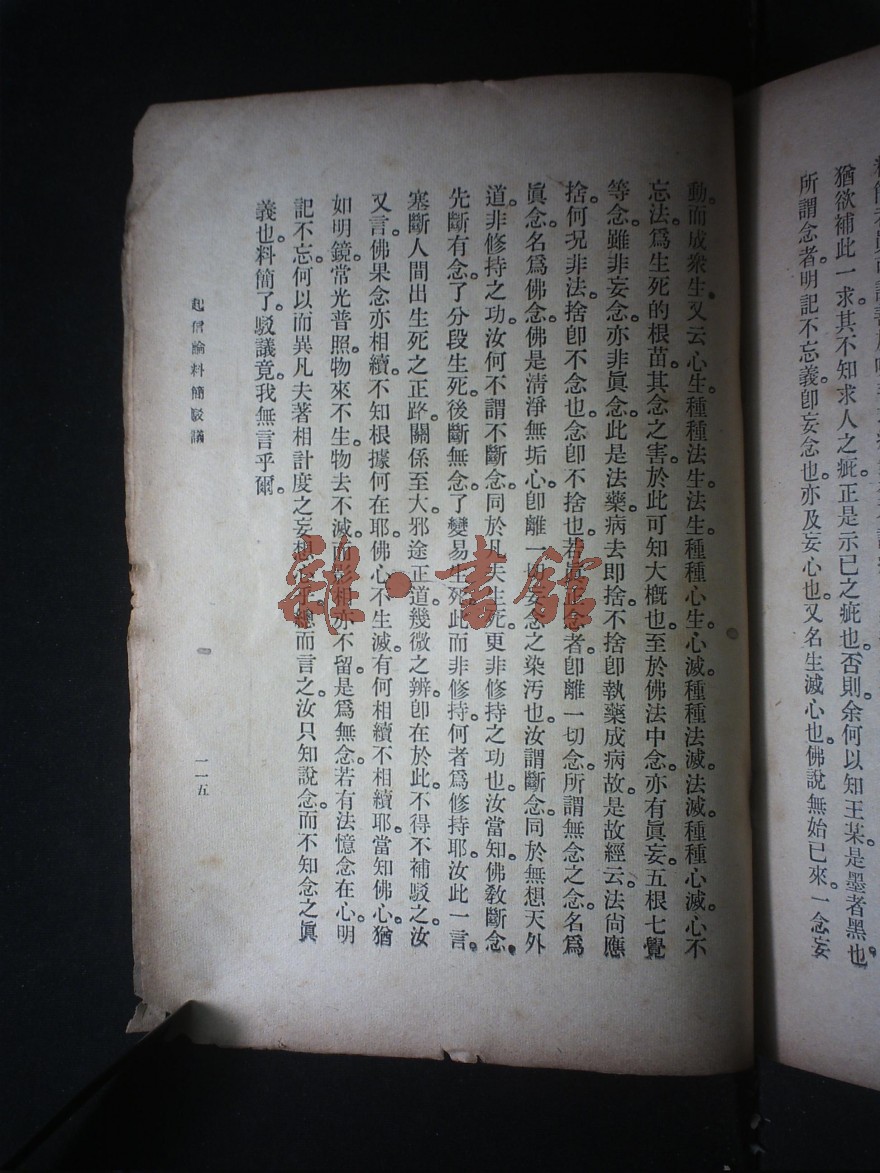 猶欲補此一求其不知求人之疵。正是示已之疵也。否則。余何以知王某是墨者黑也。
所謂念者。明記不忘義。卽妄念也。亦及妄心也。又名生滅心也。佛說無始已來。一念妄
動。而成衆生。又云。心生種種法生。法生種種心生。心滅種種法滅。法滅種種心滅。心不
忘法。爲生死的根苗。其念之害。於此可知大槪也。至於佛法中念。亦有眞妄。五根七覺
等念。雖非妄念。亦非眞念。此是法藥。病去卽捨。不捨卽執藥成病故。是故經云。法尙應
捨。何況非法。捨卽不念也。念卽不捨也。若眞正念者。卽離一切念。所謂無念之念。名爲
眞念。名爲佛念。佛是淸淨無垢心。卽離一切妄念之染汚也。汝謂斷念。同於無想天外
道。非修持之功。汝何不謂不斷念。同於凡夫生死。更非修持之功也。汝當知佛敎斷念。
先斷有念。了分段生死。後斷無念。了變易生死。此而非修持。何者爲修持耶。汝此一言。
塞斷人間出生死之正路。關係至大。邪途正道。幾微之辨。卽在於此。不得不補駁之。汝
又言。佛果念亦相續。不知根據何在耶。佛心不生滅。有何相續不相續耶。當知佛心。猶
如明鏡。常光普照。物來不生。物去不滅。而影相亦不留。是爲無念。若有法憶念在心。明
記不忘。何以而異凡夫著相計度之妄想心乎。總而言之。汝只知說念。而不知念之眞
義也。料簡了。駁議竟。我無言乎爾。
起信論料簡駁議
一一五
雜·書館